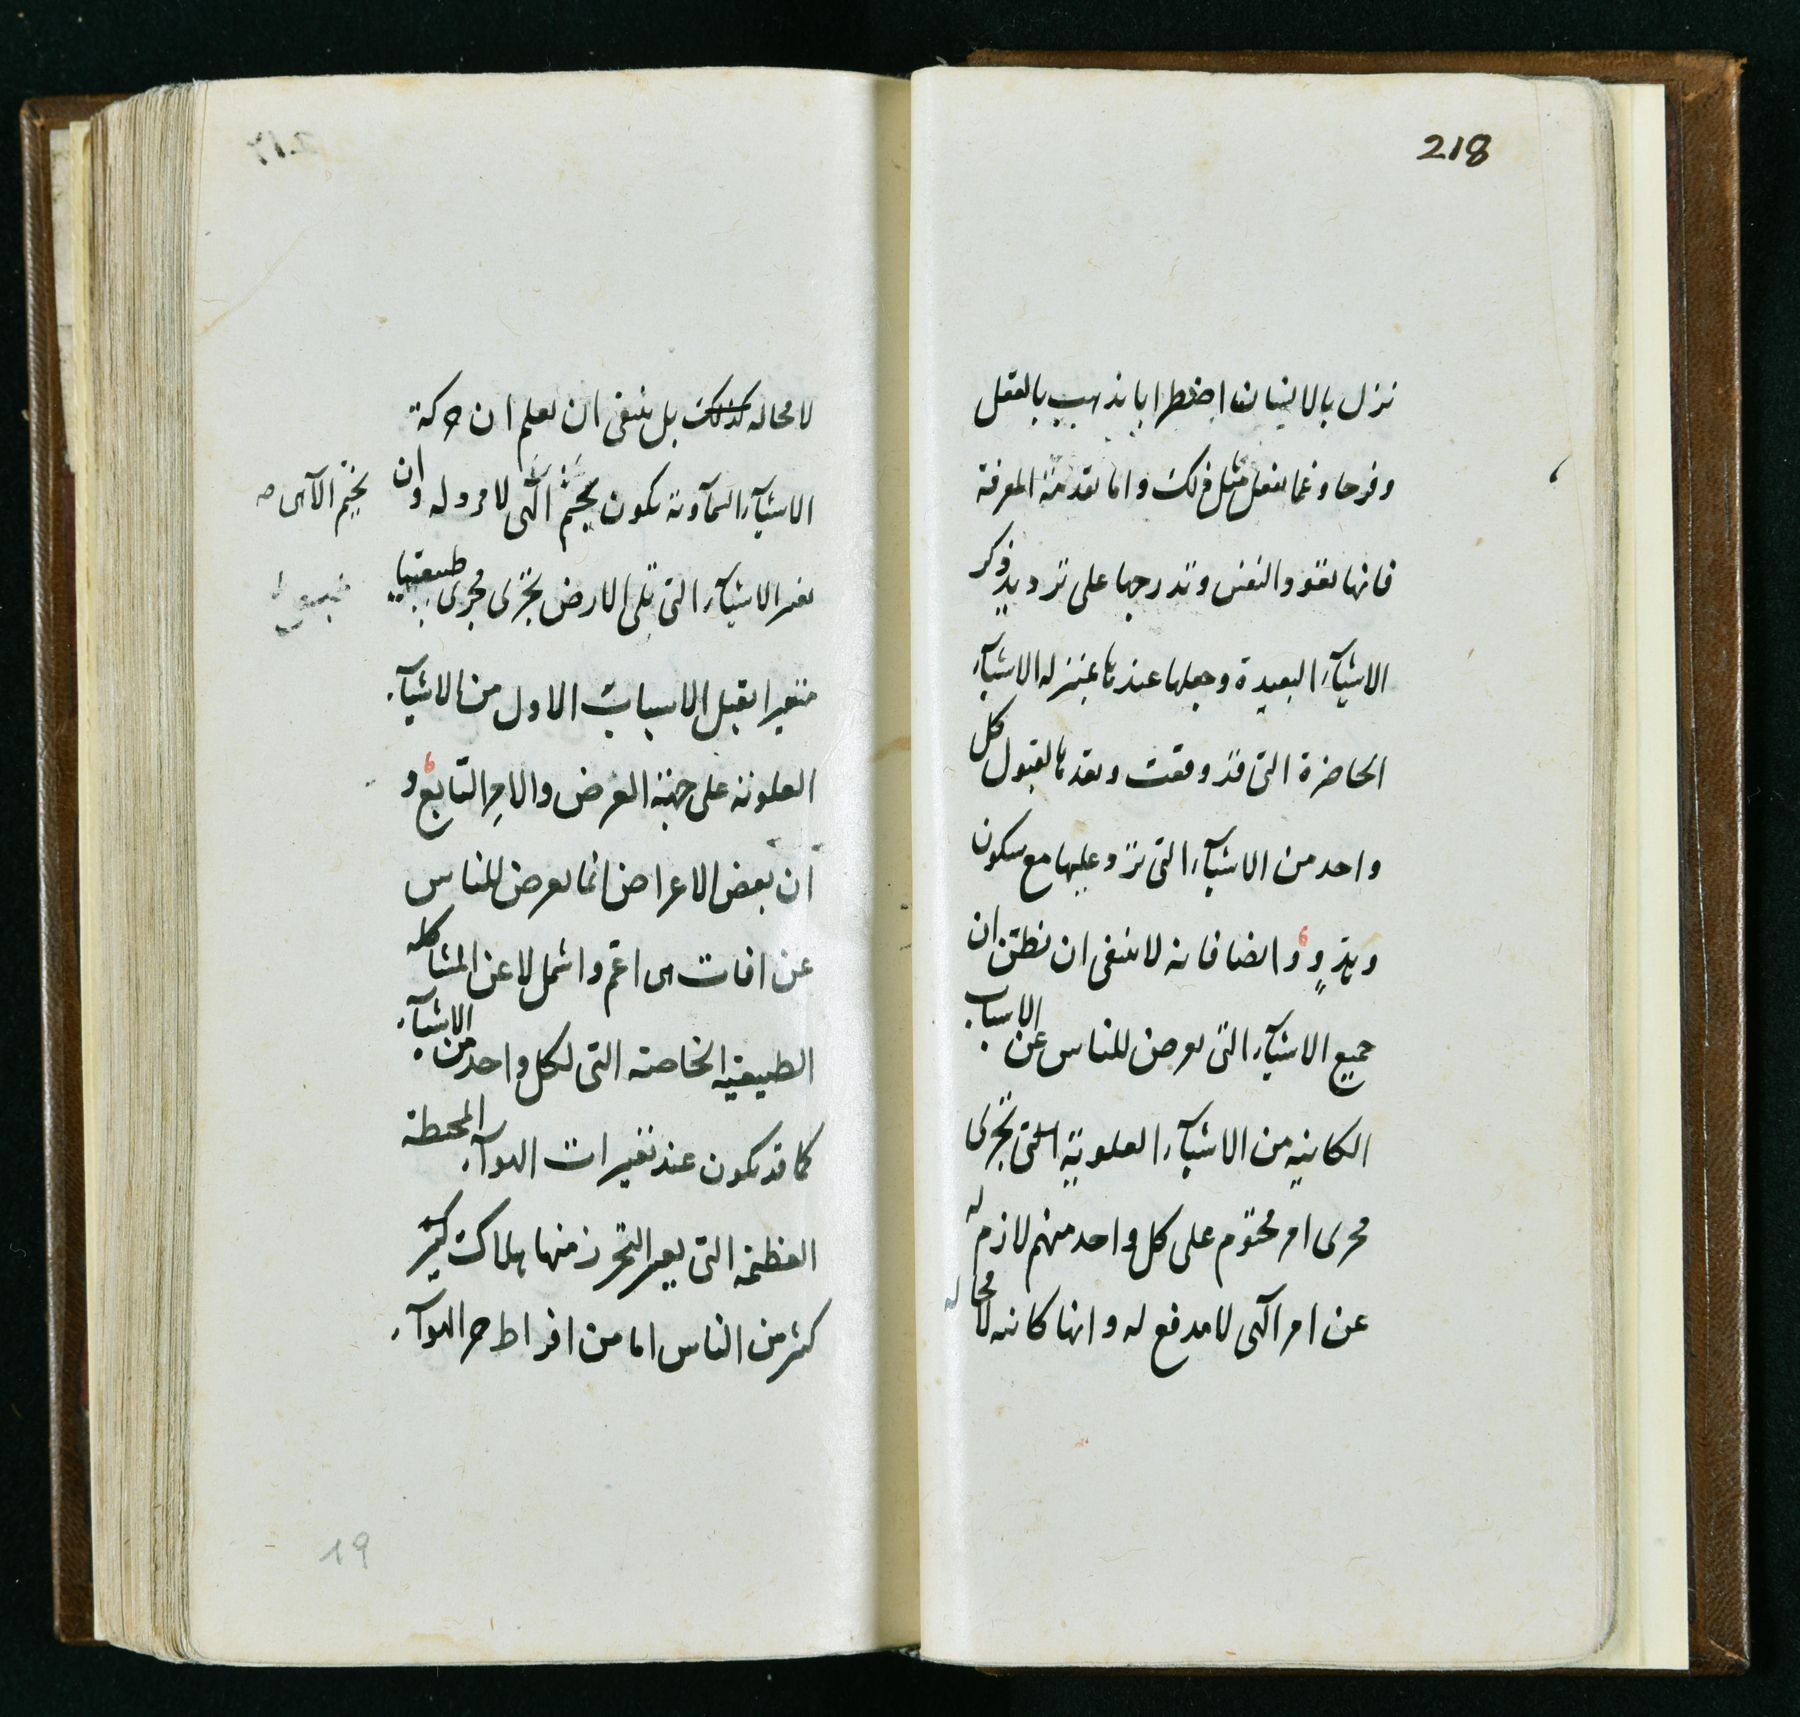 218
نزل بالانسان اضطرابا يذهب بالعقل
وفرحا وغما يفعل مثل ذلك واما تقدمة المعرفة
فانها تقود النفس وتدرجها على ترديد ذكر
الاشيآء البعيدة وجعلها عندها بمنزله الاشيآء
الحاضرة التى قد وقعت وتعدها لقبول كل
واحد من الاشيآء التى ترد عليها مع سكون
وهدو وايضا فانه لا ينبغى ان نظن ان
جميع الاشيآء التى تعرض للناس عن الاسباب
الكاينه من الاشيآء العلوية التى تجرى
مجرى امر محتوم على كل واحد منهم لازم له
عن امر آلهى لا مدفع له وانها كاينه لا محاله
لا محاله كذلك بل ينبغى ان تعلم ان حركة
الاشيآء السمآوية تكون بحتم آلهى لا مرد له وان
بحتم الآهى
تغير الاشيآء التى تلى الارض تجرى مجرى طبيعيا
متغيرا بقبل الاسباب الاول من الاشيآء
العلوية على جهة العرض والامر التابع و
ان بعض الاعراض انما تعرض للناس
عن افات هى اعم واشمل لا عن المشاكله
الطبيعيه الخاصه التى لكل واحد من الاشيآء
كما قد يكون عند تغيرات الهوآء المحيطة
العظيمة التى يعسر التحرز منها هلاك كثير
كثير من الناس اما من افراط حر الهوآء
19